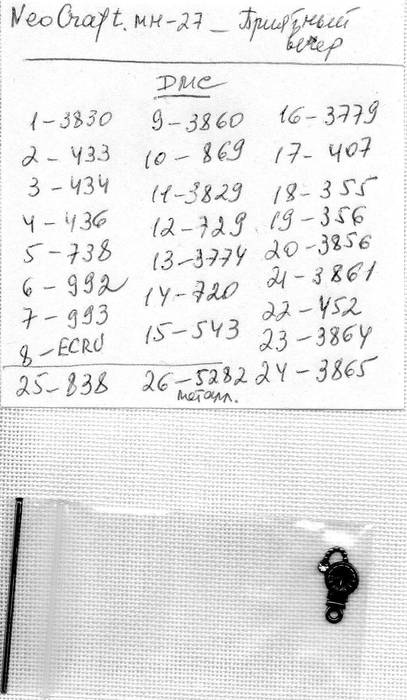 NeoCraft. МН-27 - Приятный
вечер
DMC
1-3830
2-433
3-434
4-436
5-738
6-992
7-993
8-ECRU
9-3860
10-869
11-3829
12-729
13-3774
14-720
15-543
16-3779
17-407
18-355
19-356
20-3856
21-3861
22-452
23-3864
24-3865
25-838
26-5282
металл.